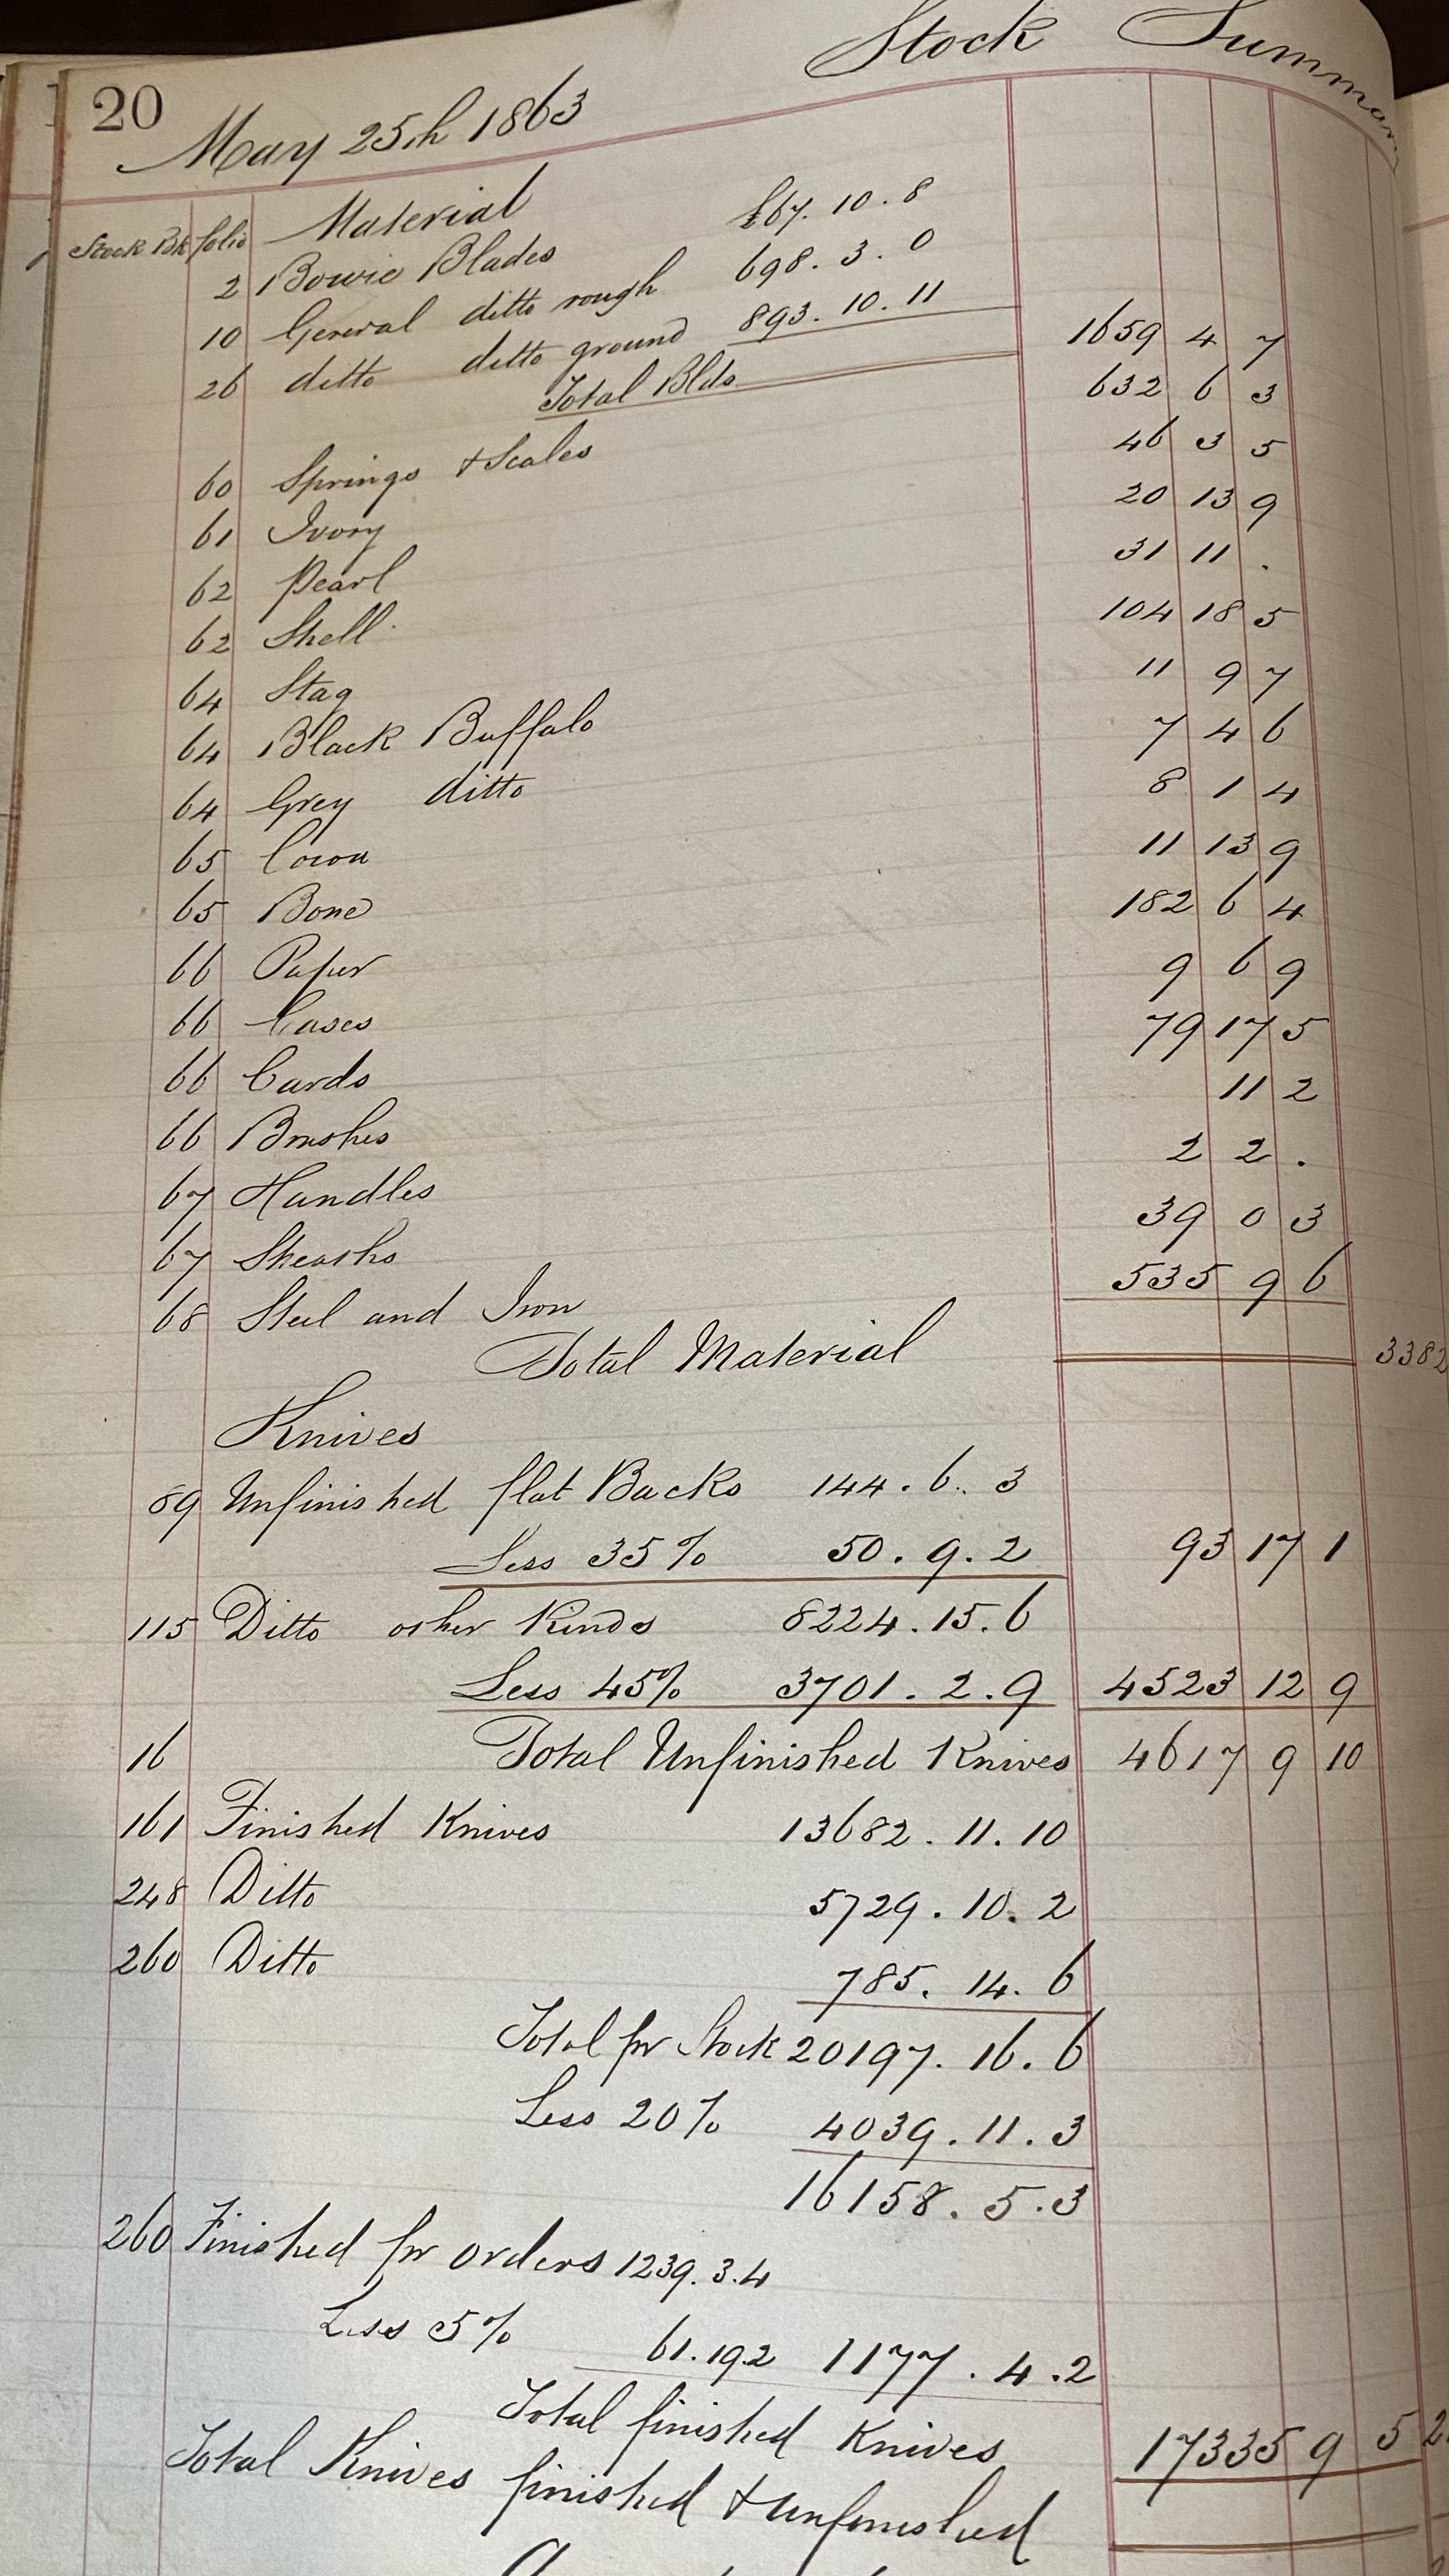 Stock Summary
20
May 25th 1863
Stock Bk folio Material
2 Bowie Blades £67. 10. 8
10 General ditto rough 698. 3. 0
26 ditto ditto ground 893. 10. 11
Total Blds 1659 4 7
60 Springs & Scales 632 6 3
61 Ivory 46 3 5
62 Pearl 20 13 9
62 Shell 31 11 .
64 Stag 104 18 5
64 Black Buffalo 11 9 7
64 Grey ditto 7 4 6
65 Cocoa 8 1 4
65 Bone 11 13 9
66 Paper 182 6 4
66 Cases 9 6 9
66 Cards 79 17 5
66 Brushes 11 2
67 Handles 2 2 .
67 Sheaths 39 0 3
68 Steel and Iron 535 9 6
Total Material 3382
Knives
89 Unfinished flat Backs 144. 6. 3
Less 35% 50. 9. 2 93 17 1
115 Ditto other Kinds 8224. 15. 6
Less 45% 3701. 2. 9 4523 12 9
16 Total Unfinished Knives 4617 9 10
161 Finished Knives 13682. 11. 10
248 Ditto 5729. 10. 2
260 Ditto 785. 14. 6
Total for Stock 20197. 16. 6
Less 20% 4039. 11. 3
16158. 5. 3
260 Finished for orders 1239. 3. 4
Less 5% 61. 19. 2 1177. 4. 2
Total finished Knives 17335 9 5
Total Knives finished & unfinished